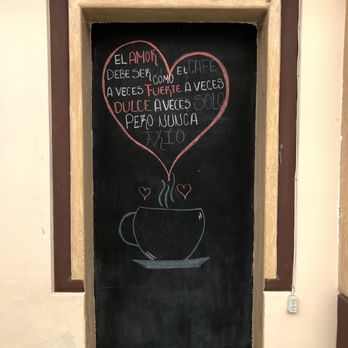 EL AMOR
DEBE SER COMO EL CAFE
A VECES FUERTE A VECES
DULCE A VECES SOLO
PERO NUNCA
FRIO